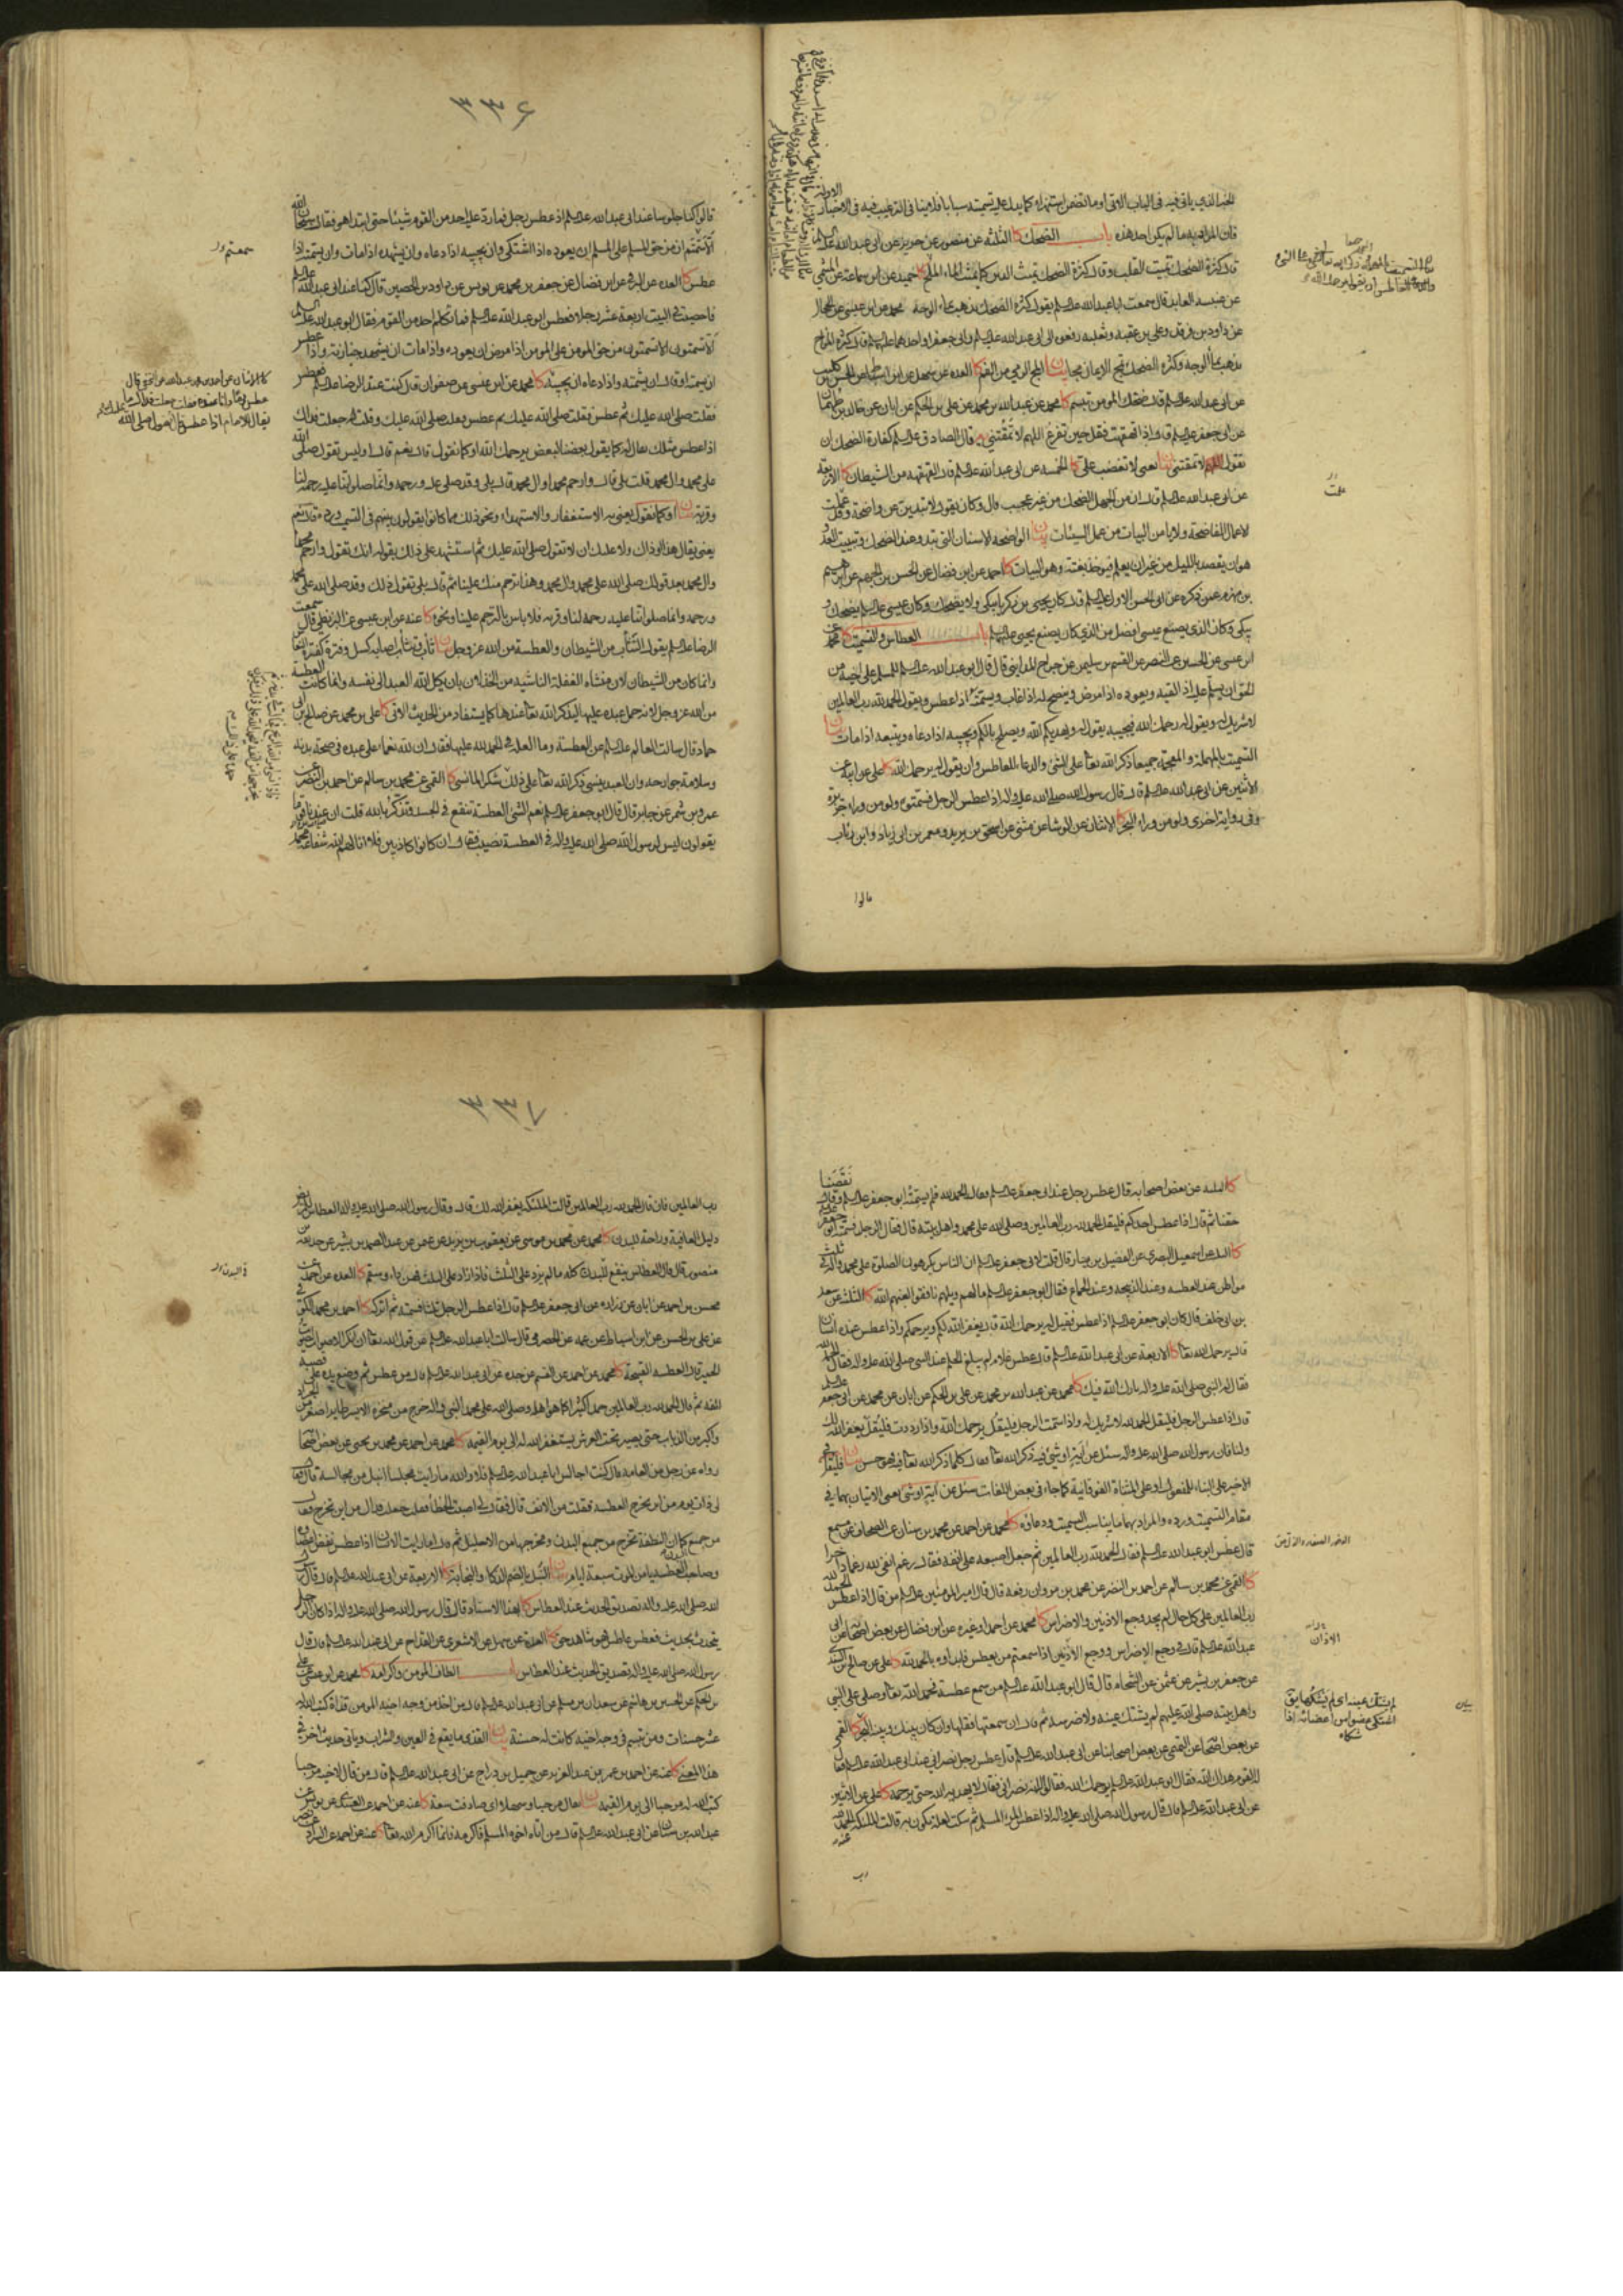 ٣٣۶
الخبر الذي ياتي فيه في الباب الاتي او ما تضمن استهزاء كما يدل عليه تسميته سبابا فلا ينافي الترغيب فيه في الاخبار الاولة
فان المراد به ما لم يكن احد هذه باب الضحك كا الثلثة عن منصور عن حريز عن ابي عبد الله عليه السلم
قال كثرة الضحك تميت القلب وقال كثرة الضحك تميث الدين كما يميث الماء الملح كا حميد عن ابن سماعة عن الميثمي
عن عنبسة العابد قال سمعت ابا عبد الله عليه السلم يقول كثرة الضحك تذهب بماء الوجه محمد عن ابن عيسى عن الحجال
عن داود بن فرقد وعلي بن عقبة وثعلبة رفعوه الى ابي عبد الله عليه السلم وابي جعفر او احدهما عليهما السلم قال كثرة المزاح
تذهب بماء الوجه وكثرة الضحك تمج الايمان مجا بيان المج الرمي من الفم كا العدة عن سهل عن ابن اسباط عن الحسن بن كليب
عن ابي عبد الله عليه السلم قال ضحك المومن تبسم كا محمد عن عبد الله بن محمد عن علي بن الحكم عن ابان عن خالد بن طهمان
عن ابي جعفر عليه السلم قال اذا قهقهت فقل حين تفرغ اللهم لا تمقتني يه قال الصادق عليه السلم كفارة الضحك ان
تقول اللهم لا تمقتني بيان يعني لا تغضب علي كا الخمسة عن ابي عبد الله عليه السلم قال القهقهة من الشيطان كا الاربعة
عن ابي عبد الله عليه السلم قال ان من الجهل الضحك من غير عجب قال وكان يقول لا تبدين عن واضحة وقد عملت
الاعمال الفاضحة ولا يامن البيات من عمل السيئات بيان الواضحة الاسنان التي تبدو عند الضحك وتبييت العدو
هو ان يقصد بالليل من غير ان يعلم فيوخذ بغتة وهو البيات كا احمد عن ابن فضال عن الحسن بن الجهم عن ابراهيم
بن مهزم عمن ذكره عن ابي الحسن الاول عليه السلم قال كان يحيى بن زكريا يبكي ولا يضحك وكان عيسى عليه السلم يضحك و
يبكي وكان الذي يصنع عيسى افضل من الذي كان يصنع يحيى عليهما السلم باب العطاس والتسميت كا محمد عن
ابن عيسى عن الحسين عن النضر عن القسم بن سليمن عن جراح المدايني قال قال ابو عبد الله عليه السلم للمسلم على اخيه من
الحق ان يسلم عليه اذا لقيه ويعوده اذا مرض وينصح له اذا غاب ويسمته اذا عطس ويقول الحمد لله رب العالمين
لا شريك له ويقول له رحمك الله فيجيبه يقول له يهديكم الله ويصلح بالكم ويجيبه اذا دعاه ويتبعه اذا مات بيان
التسميت بالمهملة والمعجمة جميعا ذكر الله تعالى على الشئ والدعاء للعاطس وان يقول له يرحمك الله كا علي عن ابيه عن
الاثنين عن ابي عبد الله عليه السلم قال قال رسول الله صلى الله عليه واله اذا عطس الرجل فسمتوه ولو من وراء جزيرة
وفي رواية اخرى ولو من وراء البحر كا الاثنان عن الوشا عن مثنى عن اسحق بن يزيد ومعمر بن ابي زياد وابن رئاب
قالوا
قالوا كنا جلوسا عند ابي عبد الله عليه السلم اذ عطس رجل فما رد عليه احد من القوم شيئا حتى ابتدا هو فقال سبحان الله
الا سمتم ان من حق المسلم على المسلم ان يعوده اذا اشتكى وان يجيبه اذا دعاه وان يشهده اذا مات وان يسمته اذا
عطس كا العدة عن البرقي عن ابن فضال عن جعفر بن محمد عن يونس عن داود بن الحصين قال كنا عند ابي عبد الله عليه السلم
فاحصيت في البيت اربعة عشر رجلا فعطس ابو عبد الله عليه السلم فما تكلم احد من القوم فقال ابو عبد الله عليه السلم
الا تسمتون الا تسمتون من حق المومن على المومن اذا مرض ان يعوده واذا مات ان يشهد جنازته واذا عطس
ان يسمته او قال ان يشمته واذا دعاه ان يجيبه كا محمد عن ابن عيسى عن صفوان قال كنت عند الرضا عليه السلم فعطس
فقلت صلى الله عليك ثم عطس فقلت صلى الله عليك ثم عطس فقلت صلى الله عليك وقلت له جعلت فداك
اذا عطس مثلك يقال له كما يقول بعضنا لبعض يرحمك الله او كما نقول قال نعم قال اوليس تقول صلى الله
على محمد وال محمد قلت بلى قال وارحم محمدا وال محمد قال بلى وقد صلى عليه ورحمه وانما صلواتنا عليه رحمة لنا
وقربة بيان او كما نقول يعني به الاستغفار والاستهداء ونحو ذلك مما كانوا يقولون بينهم في التسميت
يعني يقال هذا او ذاك ولا عليك ان لا تقول صلى الله عليك ثم استشهد على ذلك بقوله انك تقول وارحم محمدا
وال محمد بعد قولك صلى الله على محمد وال محمد وهذا ترحم منك علينا ثم قال بلى تقول ذلك وقد صلى الله على محمد
ورحمه وانما صلواتنا عليه رحمة لنا وقربة فلا باس بالترحم علينا ونحوه كا عنه عن ابن عيسى عن البزنطي قال سمعت
الرضا عليه السلم يقول التثاب من الشيطان والعطسة من الله عز وجل بيان ثاب وتثأب اصابه كسل وفترة كفترة النعاس
وانما كان من الشيطان لان منشأه الغفلة الناشية من الخذلان بان يكل الله العبد الى نفسه وانما كانت العطسة
من الله عز وجل لانه حمل عبده عليها ليذكر الله تعالى عندها كما يستفاد من الحديث الاتي كا علي بن محمد عن صالح بن ابي
حماد قال سالت العالم عليه السلم عن العطسة وما العلة في الحمد لله عليها فقال ان لله نعماء على عبده في صحة بدنه
وسلامة جوارحه وان العبد ينسى ذكر الله تعالى على ذلك
عمرو بن شمر عن جابر قال قال ابو جعفر عليه السلم نعم الشئ العطسة تنفع في الجسد وتذكر بالله قلت ان عندنا قوما
يقولون ليس لرسول الله صلى الله عليه واله في العطسة نصيب فقال ان كانوا كاذبين فلا انالهم الله شفاعة محمد
٣٣٧
كا الثلثة عن بعض اصحابه قال عطس رجل عند ابي جعفر عليه السلم فقال الحمد لله فلم يسمته ابو جعفر عليه السلم وقال نقصنا
حقنا ثم قال اذا عطس احدكم فليقل الحمد لله رب العالمين وصلى الله على محمد واهل بيته قال فقال الرجل فسمته ابو جعفر عليه السلم
كا الثلثة عن اسمعيل البصري عن الفضيل بن يسار قال قلت لابي جعفر عليه السلم ان الناس يكرهون الصلوة على محمد واله في ثلثة
مواطن عند العطسة وعند الذبيحة وعند الجماع فقال ابو جعفر عليه السلم ما لهم ويلهم نافقوا لعنهم الله كا الثلثة عن سعد
بن ابي خلف قال كان ابو جعفر عليه السلم اذا عطس فقيل له يرحمك الله قال يغفر الله لكم ويرحمكم واذا عطس عنده انسان
قال يرحمك الله تعالى كا الاربعة عن ابي عبد الله عليه السلم قال عطس غلام لم يبلغ الحلم عند النبي صلى الله عليه واله فقال الحمد لله
فقال له النبي صلى الله عليه واله بارك الله فيك كا محمد عن عبد الله بن محمد عن علي بن الحكم عن ابان عن محمد عن ابي جعفر عليه السلم
قال اذا عطس الرجل فليقل الحمد لله لا شريك له واذا سمت الرجل فليقل يرحمك الله واذا رددت فليقل يغفر الله لك
ولنا فان رسول الله صلى الله عليه واله سئل عن آية او شئ فيه ذكر الله تعالى فقال كلما ذكر الله تعالى فيه فهو حسن بيان فليقل في
الاخير على البناء للمفعول او على المثناة الفوقانية كما جاء في بعض اللغات سئل عن آية او شئ يعني الاتيان بهما في
مقام التسميت ورده والمراد بهما ما يناسب التسميت ودعاؤه كا محمد عن احمد عن محمد بن سنان عن الصحاف عن مسمع
قال عطس ابو عبد الله عليه السلم فقال الحمد لله رب العالمين ثم جعل اصبعه على انفه فقال رغم انفي لله رغما داخرا
كا القمي عن محمد بن سالم عن احمد بن النضر عن محمد بن مروان رفعه قال قال امير المومنين عليه السلم من قال اذا عطس الحمد لله
رب العالمين على كل حال لم يجد وجع الاذنين والاضراس كا محمد عن احمد او غيره عن ابن فضال عن بعض اصحابه عن ابي
عبد الله عليه السلم قال في وجع الاضراس ووجع الاذنين اذا سمعتم من يعطس فابدأوه بالحمد لله كا علي عن صالح بن السندي
عن جعفر بن بشير عن عثمن عن الشحام قال قال ابو عبد الله عليه السلم من سمع عطسة فحمد الله تعالى وصلى على النبي
واهل بيته صلى الله عليهم لم يشتك عينه ولا ضرسه ثم قال ان سمعتها فقلها وان كان بينك وبينه البحر كا القمي
عن بعض اصحابه عن التميمي عن بعض اصحابنا عن ابي عبد الله عليه السلم قال عطس رجل نصراني عند ابي عبد الله عليه السلم فقال
له القوم هداك الله فقال ابو عبد الله عليه السلم يرحمك الله فقالوا له انه نصراني فقال لا يهديه الله حتى يرحمه كا علي عن الاثنين
عن ابي عبد الله عليه السلم قال قال رسول الله صلى الله عليه واله اذا عطس المرء المسلم ثم سكت لعلة تكون به قالت الملئكة عنه الحمد لله
رب
رب العالمين فان قال الحمد لله رب العالمين قالت الملئكة يغفر الله لك قال وقال رسول الله صلى الله عليه واله العطاس للمريض
دليل العافية وراحة للبدن كا محمد عن محمد بن موسى عن يعقوب بن يزيد عن عثمن عن عبد الصمد بن بشير عن حذيفة بن
منصور قال قال العطاس ينفع للبدن كله ما لم يزد على الثلث فاذا زاد على الثلث فهو داء وسقم كا العدة عن احمد عن
محسن بن احمد عن ابان عن زرارة عن ابي جعفر عليه السلم قال اذا عطس الرجل ثلثا فسمته ثم اتركه كا احمد بن محمد الكوفي
عن علي بن الحسن عن ابن اسباط عن عمه عن الحضرمي قال سالت ابا عبد الله عليه السلم عن قول الله تعالى ان انكر الاصوات لصوت
الحمير قال العطسة القبيحة كا محمد عن احمد عن القسم عن جده عن ابي عبد الله عليه السلم قال من عطس ثم وضع يده على قصبة
انفه ثم قال الحمد لله رب العالمين حمدا كثيرا كما هو اهله وصلى الله على محمد النبي واله خرج من منخره الايسر طاير اصغر من الجراد
واكبر من الذباب حتى يصير تحت العرش يستغفر الله له الى يوم القيمة كا محمد عن احمد عن محمد بن يحيى عن بعض اصحابنا
رواه عن رجل من العامة قال كنت اجالس ابا عبد الله عليه السلم فلا والله ما رايت مجلسا انبل من مجالسه قال فقال
لي ذات يوم من اين يخرج العطسة فقلت من الانف قال فقال لي اصبت الخطا فقلت جعلت فداك من اين تخرج فقال
من جميع البدن كما ان النطفة تخرج من جميع البدن ومخرجها من الاحليل ثم قال اما رايت الانسان اذا عطس نفض اعضاؤه
وصاحب العطسة يامن الموت سبعة ايام بيان النبل بالضم الذكاء والنجابة كا الاربعة عن ابي عبد الله عليه السلم قال قال رسول
الله صلى الله عليه واله تصديق الحديث عند العطاس كا بهذا الاسناد قال قال رسول الله صلى الله عليه واله اذا كان الرجل
يتحدث بحديث فعطس عاطس فهو شاهد حق كا العدة عن سهل عن الاشعري عن القداح عن ابي عبد الله عليه السلم قال قال
رسول الله صلى الله عليه واله تصديق الحديث عند العطاس باب الطاف المومن واكرامه كا محمد عن ابن عيسى عن علي
بن الحكم عن الحسين بن هاشم عن سعدان بن مسلم عن ابي عبد الله عليه السلم قال من اخذ من وجه اخيه المومن قذاة كتب الله له
عشر حسنات ومن تبسم في وجه اخيه كانت له حسنة بيان القذى ما يقع في العين والشراب وياتي حديث اخر في
هذا المعنى كا عنه عن احمد عن عمر بن عبد العزيز عن جميل بن دراج عن ابي عبد الله عليه السلم قال من قال لاخيه مرحبا
كتب الله له مرحبا الى يوم القيمة بيان يقال مرحبا وسهلا اي صادفت سعة كا عنه عن احمد عن
عبد الله بن سنان عن ابي عبد الله عليه السلم قال من اتاه اخوه المسلم فاكرمه فانما اكرم الله تعالى كا عنه عن احمد عن